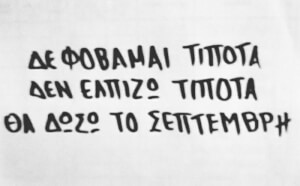 ΔΕ ΦΟΒΑΜΑΙ ΤΙΠΟΤΑ
ΔΕΝ ΕΛΠΙΖΩ ΤΙΠΟΤΑ
ΘΑ ΔΩΣΩ ΤΟ ΣΕΠΤΕΜΒΡΗ